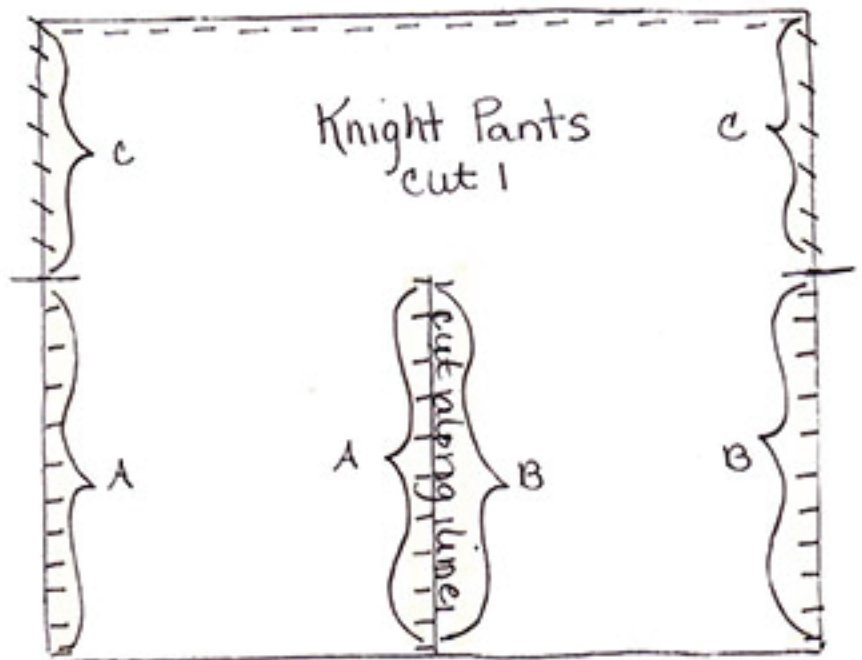 Knight Pants
cut 1
C
C
A
A
B
B
cut along line